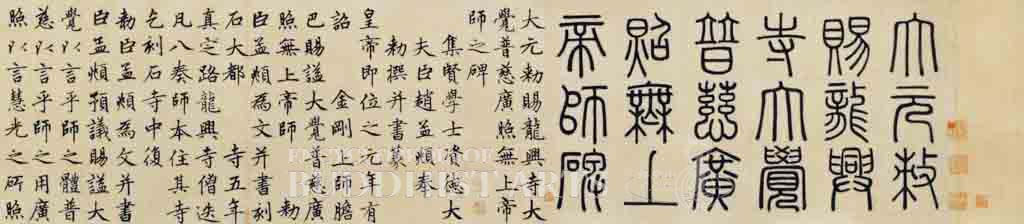 大元敕
賜龍興
寺大覺
普慈廣
照無上
帝師碑
大元勅賜龍興寺大
覺普慈廣照無上帝
師之碑
集賢學士資德大
夫臣趙孟頫奉
勅撰并書篆
皇帝即位之元年有
詔金剛上師膽
巴賜謚大覺普慈廣
照無上帝師勅
臣孟頫為文并書刻
石大都寺五年
真定路龍興寺僧迭
凡八奏師本住其寺
乞刻石寺中復
勅臣孟頫為文并書
臣孟頫預議賜謚大
覺以言乎師之體普
慈以言乎師之用廣
照以言慧光之所照
BUDDHIST ARTS